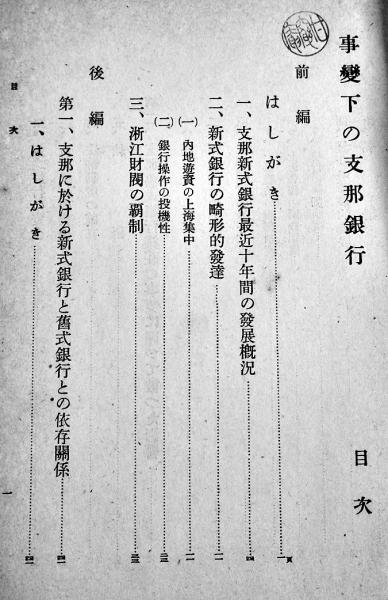 事變下の支那銀行
目次
前編
はしがき……一頁
一、支那新式銀行最近十年間の發展槪況……四
二、新式銀行の畸形的發達……一一
(一) 內地遊資の上海集中……一一
(二) 銀行操作の投機性
三、浙江財閥の覇制
後編
第一、支那に於ける新式銀行と舊式銀行との依存關係
一、はしがき
目次
一